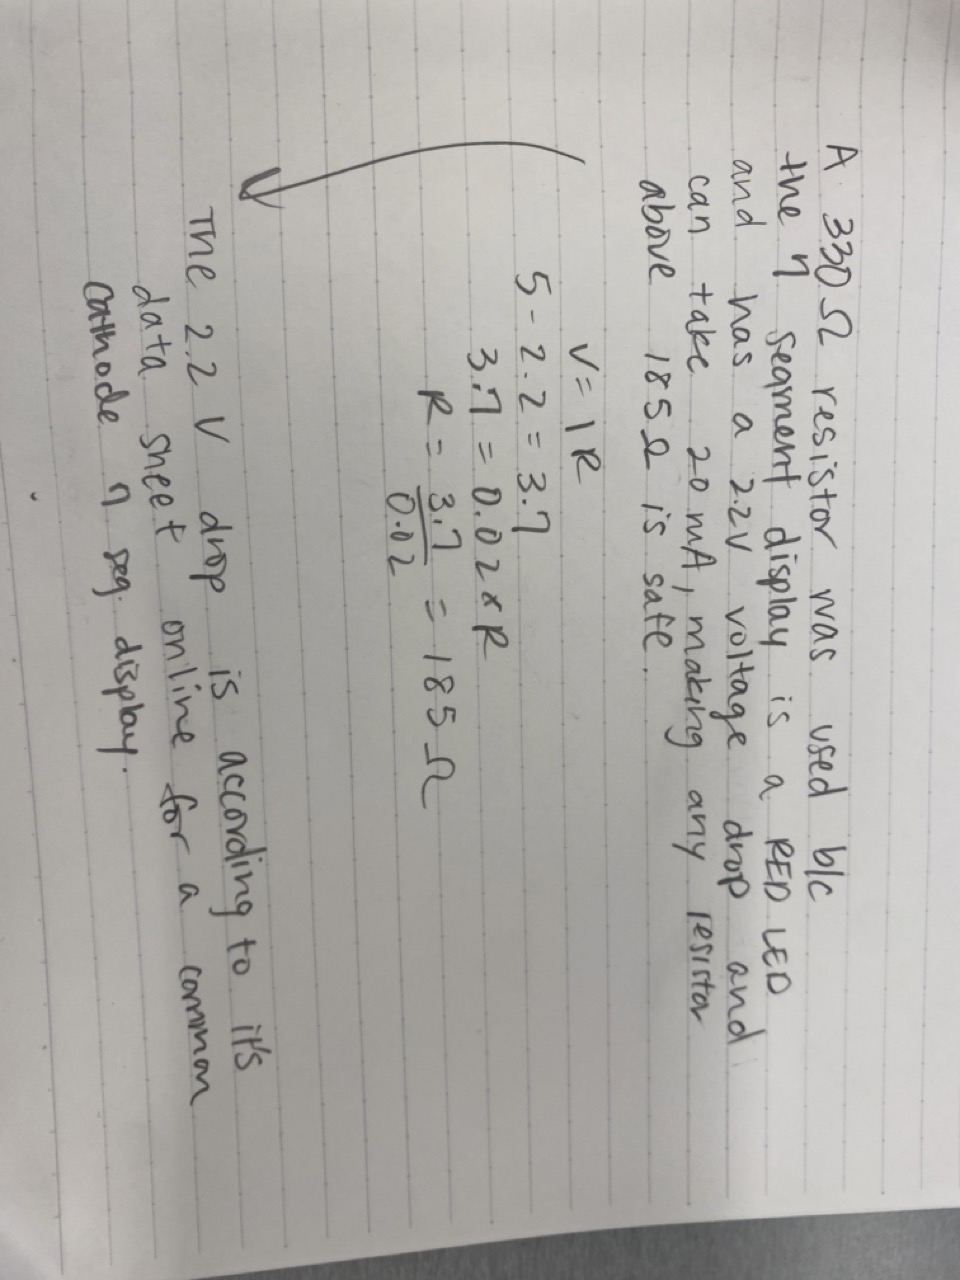 A 330Ω resistor was used b/c
the 7 segment display is a RED LED
and has a 2.2V voltage drop and
can take 20 mA, making any resistor
above 185Ω is safe.
V = IR
5 - 2.2 = 3.7
3.7 = 0.02 x R
R = 3.7/0.02 = 185 Ω
The 2.2 V drop is according to it's
data sheet online for a common
cathode 7 seg. display.